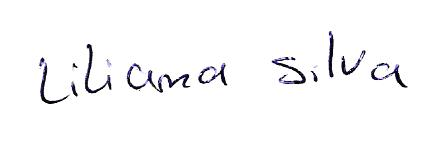 Liliana Silva